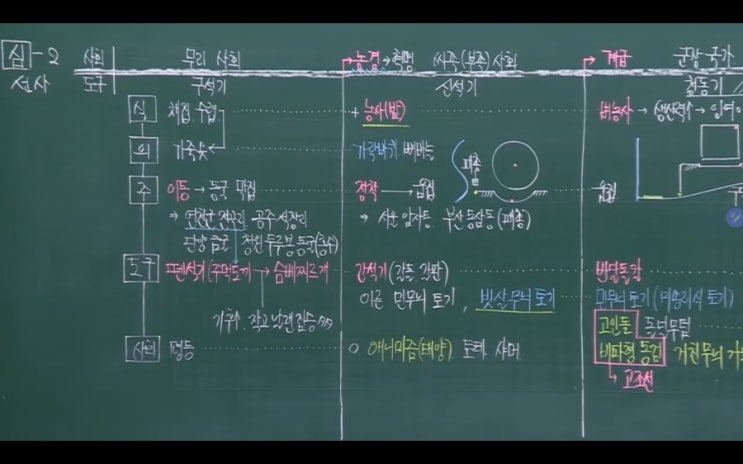 심-2 사회 무리 사회 → 농경 → 혁명 씨족(부족)사회 → 계급 군장 국가
선사 도구 구석기 신석기 청동기
식 채집 수렵 + 농사(밭) 벼농사 → 생산력↑ → 잉여
의 가죽옷 가락바퀴 뼈바늘 패총
주 이동 → 동굴 막집 정착 → 움집 움집
⇒ 연천군 전곡리 공주 석장리 ⇒ 서울 암사동 부산 동삼동(패총)
단양 금굴 청원 두루봉 동굴(흥수)
도구 뗀석기(주먹도끼 → 슴베찌르개 간석기(갈돌 갈판) 반달돌칼
이른 민무늬 토기, 빗살무늬 토기 민무늬 토기(미송리식 토기)
기후↑ 작고 날랜 짐승 고인돌 돌널무덤
사회 평등 애니미즘(태양) 토테 샤머 비파형 동검 거친무늬 거
→ 고조선